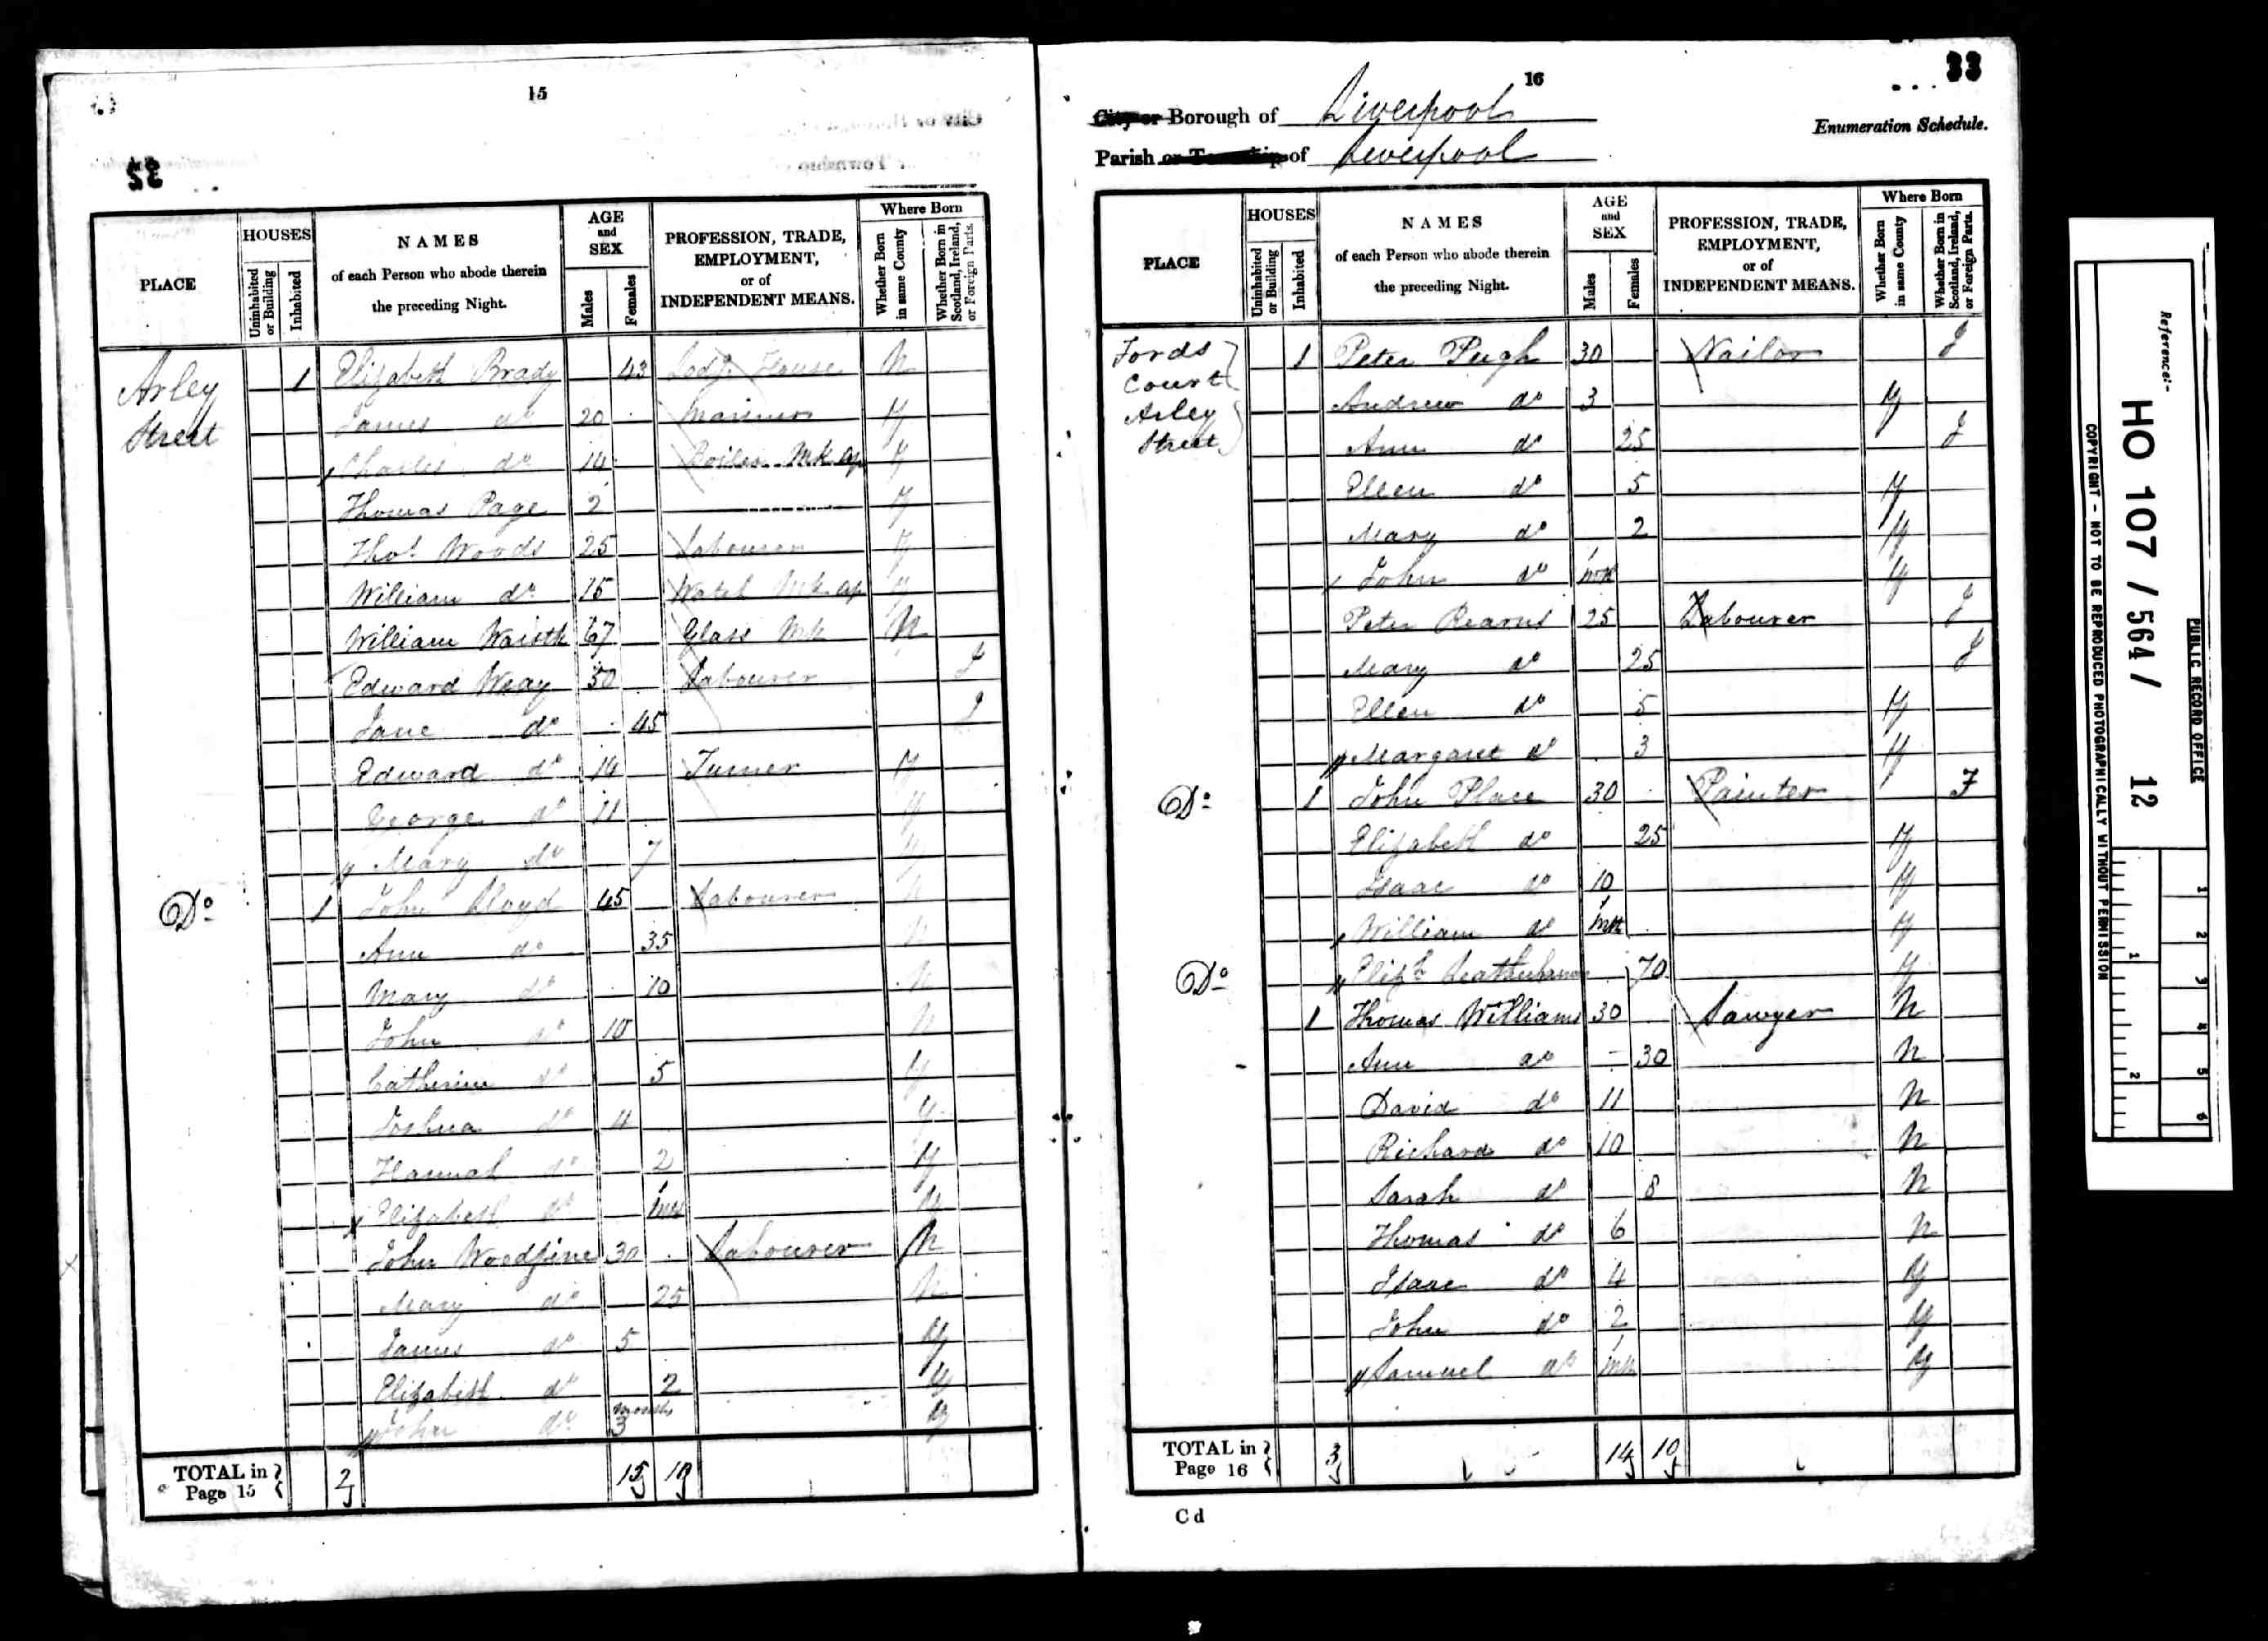 15
32
PLACE
HOUSES
Uninhabited or Building
Inhabited
NAMES
of each Person who abode therein
the preceding Night.
AGE
and
SEX
Males
Females
PROFESSION, TRADE,
EMPLOYMENT,
or of
INDEPENDENT MEANS.
Where Born
Whether Born in same County
Whether Born in Scotland, Ireland, or Foreign Parts.
Arley Street 1 Elizabeth Brady 43 Lodg House N
James do 20 Mariner Y
Charles do 14 Boiler Mk Ap Y
Thomas Page 2 Y
Thos Woods 25 Labourer Y
William do 15 Watch Mk Ap Y
William 67 Glass Mk N
Edward Wray 50 Labourer I
Jane do 45 I
Edward do 14 Turner Y
George do 11 Y
Mary do 7 Y
Do 1 John Lloyd 45 Labourer N
Ann do 35 N
Mary do 10 N
John do 10 N
Catherine do 5 Y
Joshua do 4 Y
Hannah do 2 Y
Elizabeth do Y
John Woodfine 30 Labourer N
Mary do 25 N
James do 5 Y
Elizabeth do 2 Y
John do 3 months Y
TOTAL in Page 15 2 15 10
16
33
City or Borough of Liverpool
Enumeration Schedule.
Parish or Township of Liverpool
PLACE
HOUSES
Uninhabited or Building
Inhabited
NAMES
of each Person who abode therein
the preceding Night.
AGE
and
SEX
Males
Females
PROFESSION, TRADE,
EMPLOYMENT,
or of
INDEPENDENT MEANS.
Where Born
Whether Born in same County
Whether Born in Scotland, Ireland, or Foreign Parts.
Fords Court Arley Street 1 Peter Pugh 30 Nailor I
Andrew do 3 Y
Ann do 25 I
Ellen do 5 Y
Mary do 2 Y
John do 1 mth Y
Peter Kearns 25 Labourer I
Mary do 25 I
Ellen do 5 Y
Margaret do 3 Y
Do 1 John Place 30 Painter F
Elizabeth do 25 Y
Isaac do 10 Y
William do 1 mth Y
Elizth 70 Y
Do 1 Thomas Williams 30 Sawyer N
Ann do 30 N
David do 11 N
Richard do 10 N
Sarah do 8 N
Thomas do 6 N
Isaac do 4 Y
John do 2 Y
Samuel do 1 mth Y
TOTAL in Page 16 3 14 10
C d
Reference:-
HO 107 / 564 / 12
PUBLIC RECORD OFFICE
COPYRIGHT - NOT TO BE REPRODUCED PHOTOGRAPHICALLY WITHOUT PERMISSION
1 2 3 4 5 6
1 2